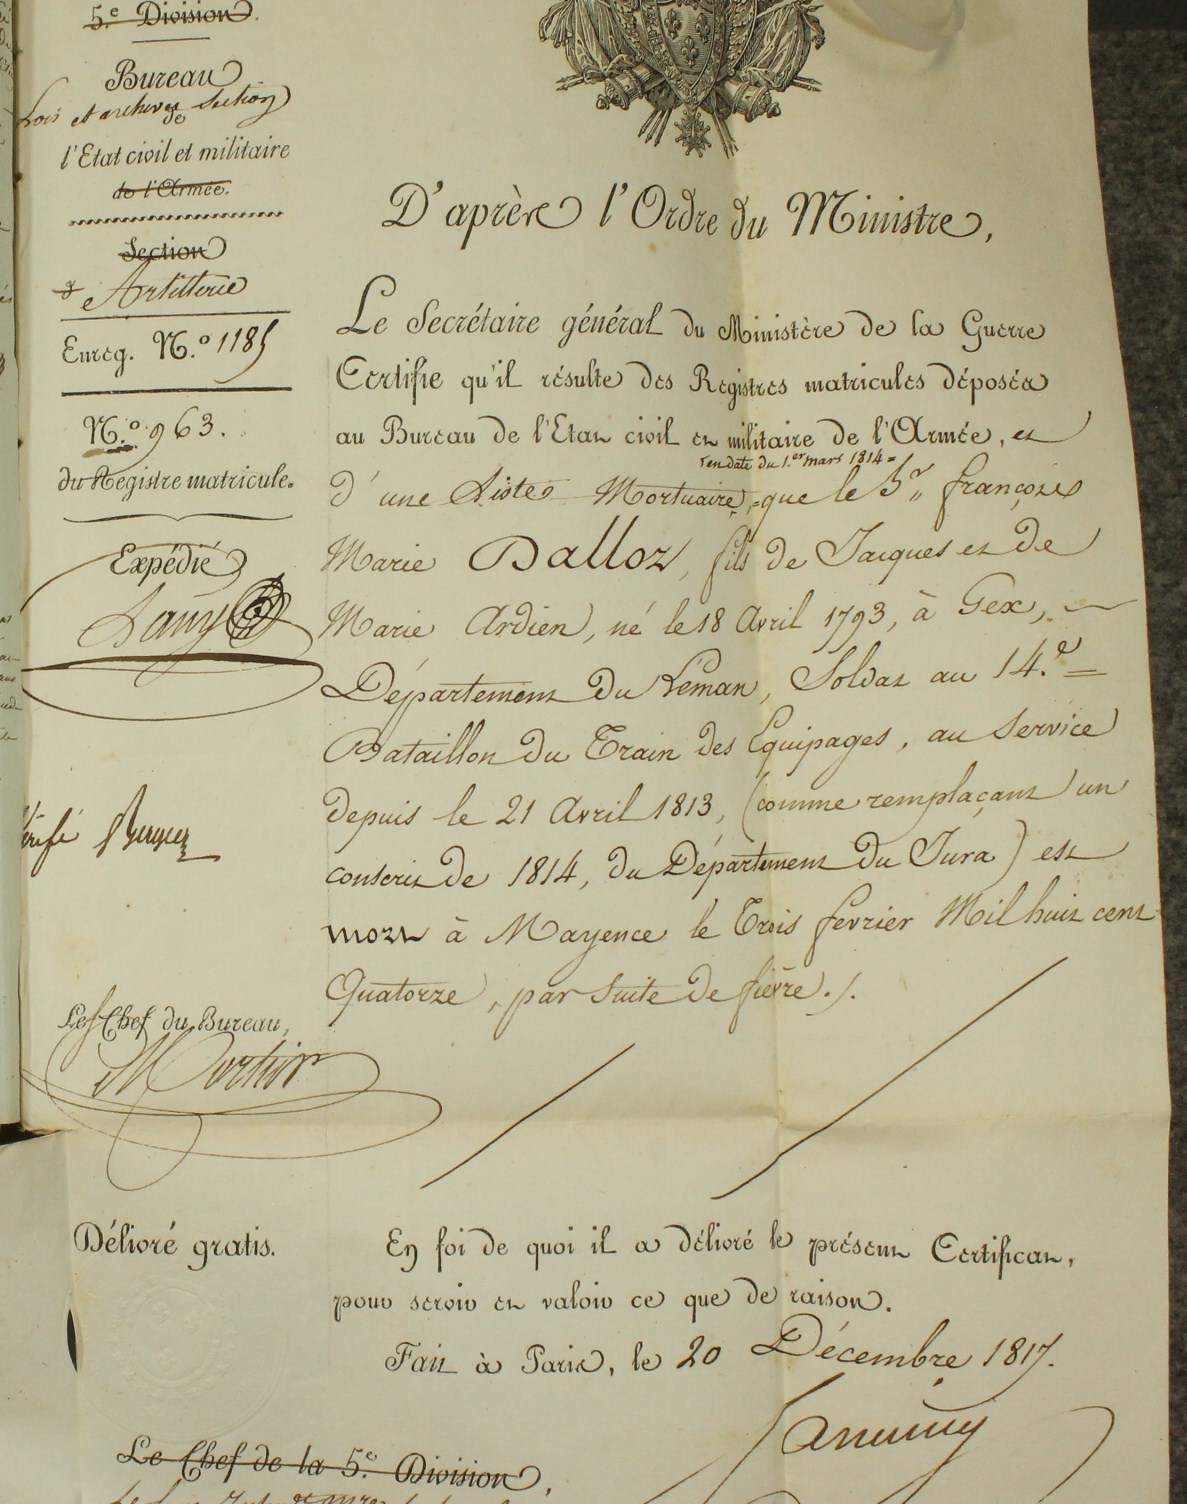 5.e Division.
Bureau
Lois et archives Section
de
l'Etat civil et militaire
de l'Armée.
Section
Artillerie
Enreg. N.o 1185
N.o 963.
du Registre matricule.
Expédié
Vérifié
Le Chef du Bureau,
Délivré gratis.
D'après l'Ordre du Ministre,
Le Secrétaire général du Ministère de la Guerre
Certifie qu'il résulte des Registres matricules déposés
au Bureau de l'Etat civil et militaire de l'Armée, et
en date du 1.er mars 1814 =
d'une Liste Mortuaire, que le S.r françois
Marie Dalloz, fils de Jacques et de
Marie Ardien, né le 18 Avril 1793, à Gex,
Département du Léman, Soldat au 14.e =
Bataillon du Train des Equipages, au Service
depuis le 21 Avril 1813, (comme remplaçant un
conscrit de 1814, du Département du Jura) est
mort à Mayence le Trois fevrier Mil huit cent
Quatorze, par Suite de fièvre ./.
En foi de quoi il a délivré le présent Certificat,
pour servir et valoir ce que de raison.
Fait à Paris, le 20 Décembre 1817.
Le Chef de la 5.e Division,